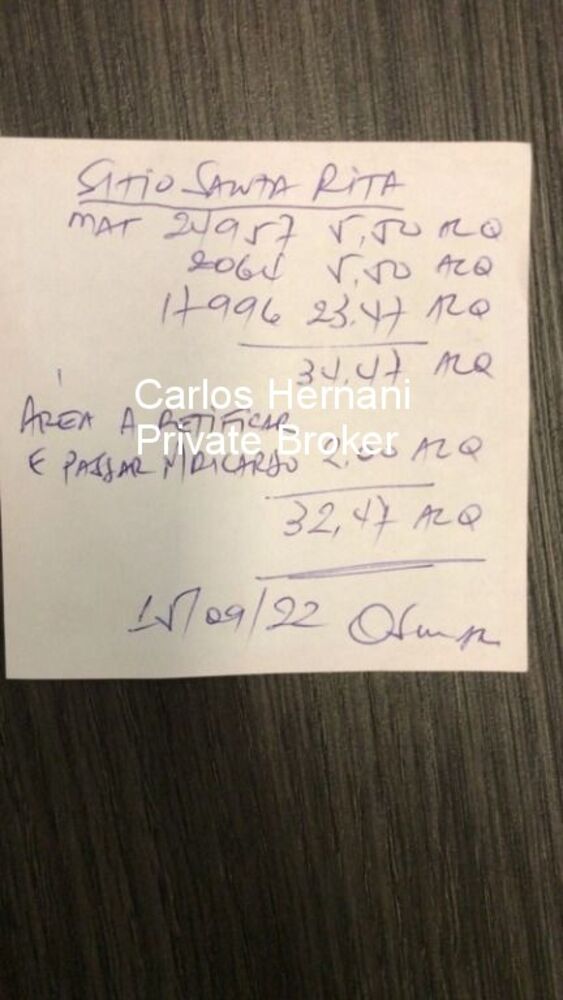 SITIO SANTA RITA
MAT 24957 5,50 ALQ
2064 5,50 ALQ
17996 23,47 ALQ
34,47 ALQ
Carlos Hernani
ÁREA A RETIFICAR
Private Broker
E PASSAR P/RICARDO 2,00 ALQ
32,47 ALQ
15/09/22